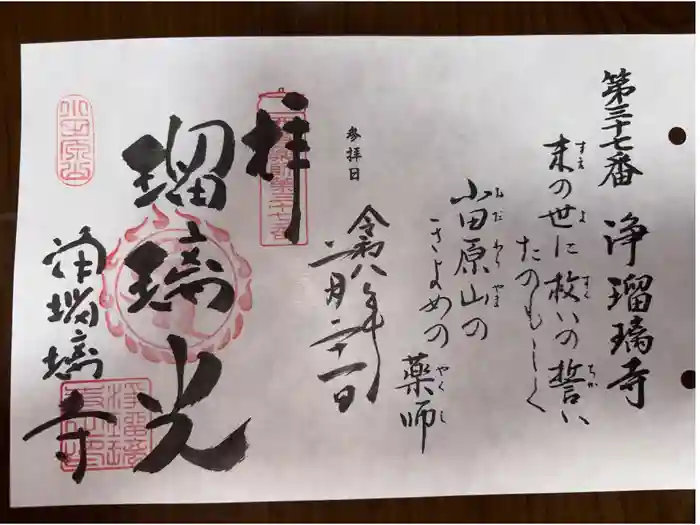 第三十七番 浄瑠璃寺
末の世に救いの誓い
すえ よ すく ちか
たのもしく
小田原山の
きよめの
薬師
やくし
参拝日
令和八年
二月二十一日
拝
瑠璃光
浄瑠璃寺
小田原山